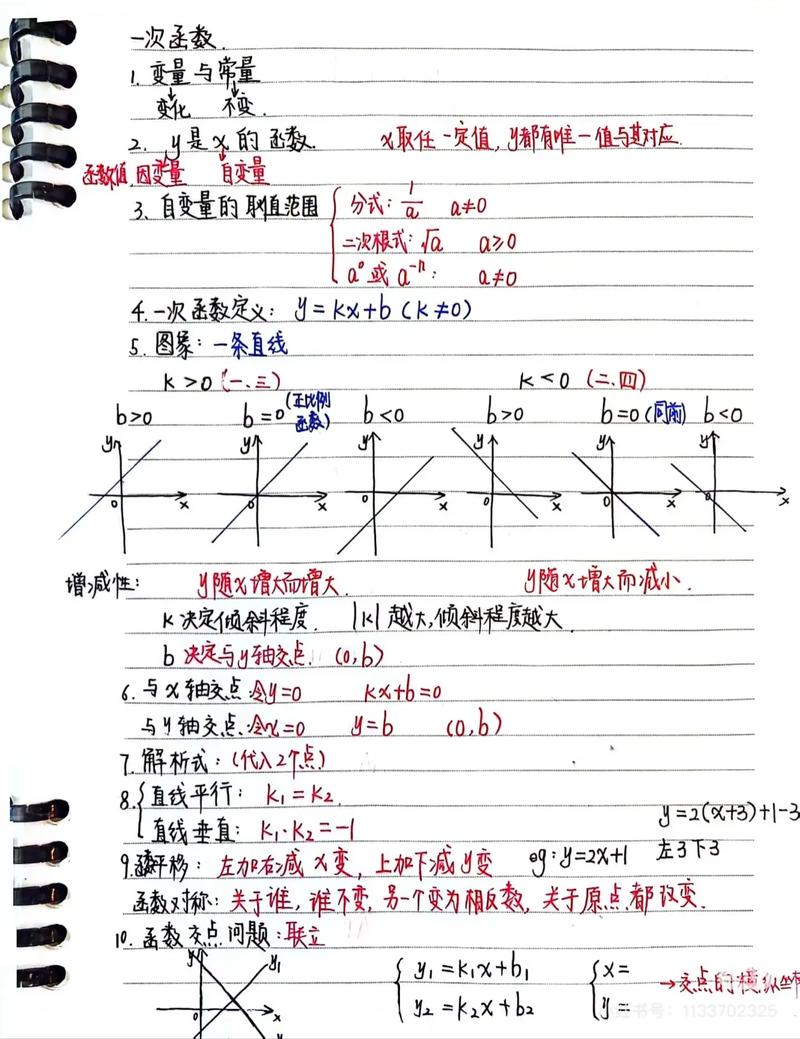 一次函数.
1. 变量与常量
变化 不变.
2. y是x的函数. x取任一定值, y都有唯一值与其对应.
函数值 因变量 自变量
3. 自变量的取值范围 分式: 1/a a≠0
二次根式: √a a≥0
a⁰或a⁻ⁿ: a≠0
4. 一次函数定义: y=kx+b (k≠0)
5. 图象: 一条直线
k>0 (一、三) k<0 (二、四)
b>0 b=0 (正比例函数) b<0 b>0 b=0 (同前) b<0
y y y y y y
0 x 0 x 0 x 0 x 0 x 0 x
增减性: y随x增大而增大. y随x增大而减小.
k决定倾斜程度. |k|越大, 倾斜程度越大.
b决定与y轴交点. (0,b)
6. 与x轴交点: 令y=0 kx+b=0
与y轴交点: 令x=0 y=b (0,b)
7. 解析式: (代入2个点)
8. 直线平行: k₁=k₂.
直线垂直: k₁·k₂=-1
y=2(x+3)+1-3
9. 平移: 左加右减x变, 上加下减y变 eg: y=2x+1 左3下3
函数对称: 关于谁, 谁不变, 另一个变为相反数, 关于原点都改变.
10. 函数交点问题: 联立
y y₁ 0 x
y₁=k₁x+b₁ x=
y₂=k₂x+b₂ y=
→交点的横纵坐标
小红书号: 1133702325